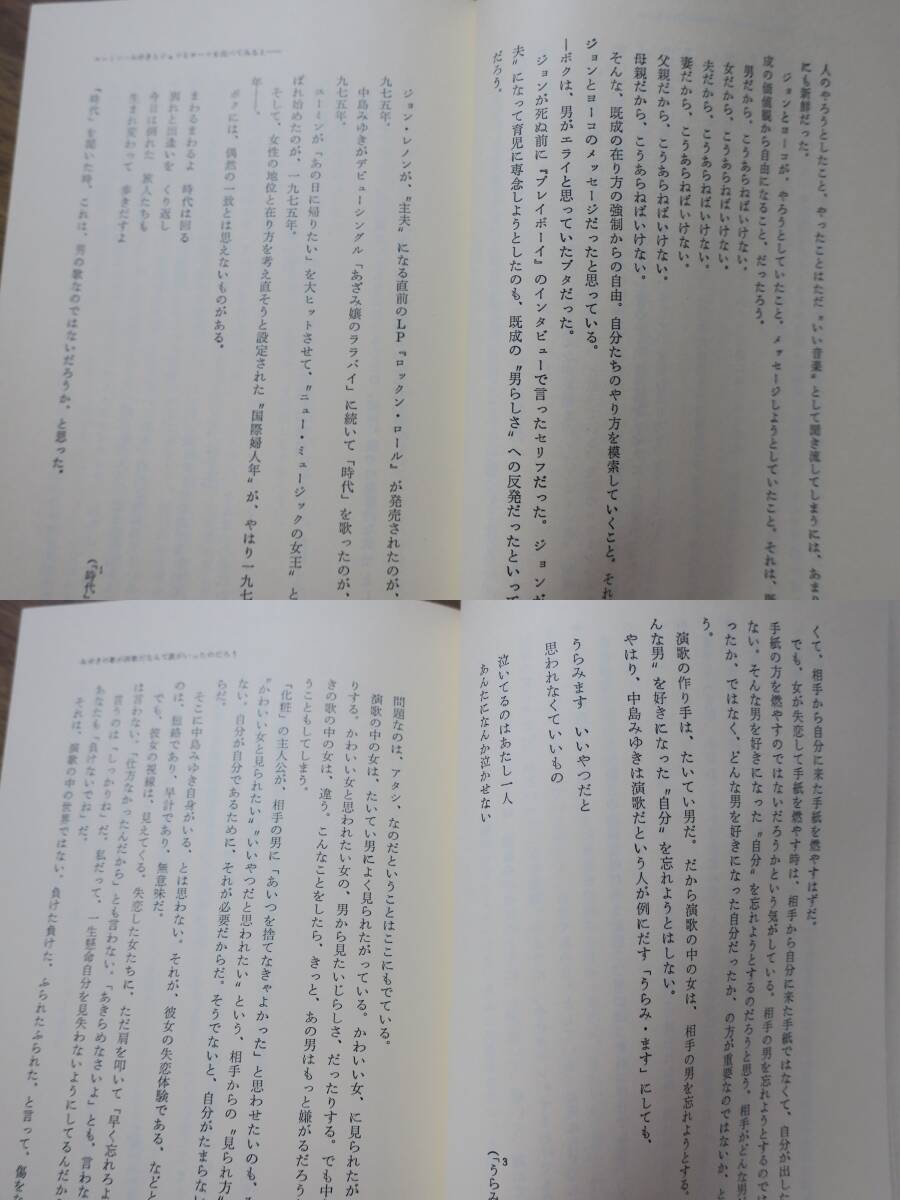 人のやろうとしたこと、やったことはただ〝いい音楽〟として聞き流してしまうには、あまり
にも新鮮だった。
ジョンとヨーコが、やろうとしていたこと、メッセージしようとしていたこと。それは、既
成の価値観から自由になること、だったろう。
男だから、こうあらねばいけない。
女だから、こうあらねばいけない。
夫だから、こうあらねばいけない。
妻だから、こうあらねばいけない。
父親だから、こうあらねばいけない。
母親だから、こうあらねばいけない。
そんな、既成の在り方の強制からの自由。自分たちのやり方を模索していくこと。それ
ジョンとヨーコのメッセージだったと思っている。
―ボクは、男がエライと思っていたブタだった。
ジョンが死ぬ前に『プレイボーイ』のインタビューで言ったセリフだった。ジョンが
夫〟になって育児に専念しようとしたのも、既成の〝男らしさ〟への反発だったといって
だろう。
ジョン・レノンが、〝主夫〟になる直前のLP『ロックン・ロール』が発売されたのが、
九七五年。
中島みゆきがデビューシングル「あざみ嬢のララバイ」に続いて「時代」を歌ったのが、
九七五年。
ユーミンが「あの日に帰りたい」を大ヒットさせて、〝ニュー・ミュージックの女王〟と
ばれ始めたのが、一九七五年。
そして、女性の地位と在り方を考え直そうと設定された〝国際婦人年〟が、やはり一九七
年――。
ボクには、偶然の一致とは思えないものがある。
まわるまわるよ　時代は回る
別れと出逢いを　くり返し
今日は倒れた　旅人たちも
生まれ変わって　歩きだすよ
(「時代」
1
「時代」を聞いた時、これは、男の歌なのではないだろうか、と思った。
くて、相手から自分に来た手紙を燃やすはずだ。
でも、女が失恋して手紙を燃やす時は、相手から自分に来た手紙ではなくて、自分が出した
手紙の方を燃やすのではないだろうかという気がしている。相手の男を忘れようとするので
ない。そんな男を好きになった〝自分〟を忘れようとするのだろうと思う。相手がどんな男
ったか、ではなく、どんな男を好きになった自分だったか、の方が重要なのではないか、と
う。
演歌の作り手は、たいてい男だ。だから演歌の中の女は、相手の男を忘れようとする。
んな男〟を好きになった〝自分〟を忘れようとはしない。
やはり、中島みゆきは演歌だという人が例にだす「うらみ・ます」にしても、
うらみます　いいやつだと
思われなくていいもの
泣いてるのはあたし一人
あんたになんか泣かせない
(「うらみ
3
みゆきの歌が演歌だなんて誰がいったのだろう
問題なのは、アタシ、なのだということはここにもでている。
演歌の中の女は、たいてい男によく見られたがっている。かわいい女、に見られたが
りする。かわいい女と思われたい女の、男から見たいじらしさ、だったりする。でも中
きの歌の中の女は、違う。こんなことをしたら、きっと、あの男はもっと嫌がるだろう
うこともしてしまう。
「化粧」の主人公が、相手の男に「あいつを捨てなきゃよかった」と思わせたいのも、
〝かわいい女と見られたい〟〝いいやつだと思われたい〟という、相手からの〝見られ方〟
ない、自分が自分であるために、それが必要だからだ。そうでないと、自分がたまらな
らだ。
そこに中島みゆき自身がいる、とは思わない。それが、彼女の失恋体験である、などと
のは、短絡であり、早計であり、無意味だ。
でも、彼女の視線は、見えてくる。失恋した女たちに、ただ肩を叩いて「早く忘れろよ
は言わない。「仕方なかったんだから」とも言わない。「あきらめなさいよ」とも、言わな
言うのは「しっかりね」だ。私だって、一生懸命自分を見失わないようにしてるんだか
あなたも「負けないでね」だ。
それは、演歌の中の世界ではない。負けた負けた、ふられたふられた、と言って、傷をな